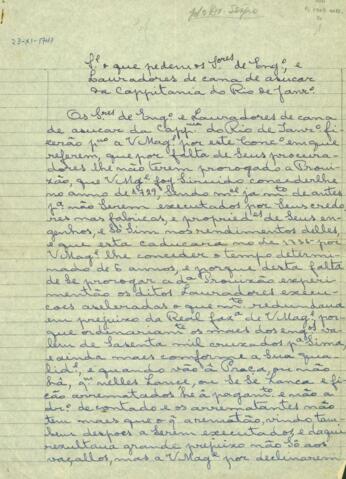 23-XI-1741
Sr.
S.e o que pedem os S.res de Eng.o, e
Lauradores de cana de asucar
da Cappitania do Rio de Janr.o
Os S.res de Eng.o e Lauradores de cana
de asucar da Capp.nia do Rio de Janr.o
fizerão a V. Mag.e por este Cons.o em que
referem, que por falta de Seus procura-
dores lhe não terem prorogado a Proui-
zão, que V. Mag.e foi Seruido concederlhe
no anno de 1729
p.a não Serem executados por Seus credo-
res mas fabricas, e propried.es de Seus en-
genhos, e Só Sim nos rendimentos delles,
e que esta caducara no de 1735 por
V. Mag.e lhe conceder o tempo determi-
nado de 6 annos, e porque desta falta
de Se prorogar a d.a Prouizão experi-
mentão os ditos Lauradores execu-
coes aseleradas o que redundaua
em prejuizo da Real faz.a de V. Mag.e por
que ordinariam.te os mais dos eng.os va-
lem de Sasenta mil cruzados p.a Sima,
e ainda mais comforme a Sua qua-
lid.e, e quando vão á Praça, ou não
há, q.m nelles Lance, ou Se Se Lanca e fi-
cão arrematados he á pagam.to e não a
dr.o de contado e os arrematantes não
tem mais que o q. arematão, vindo tam-
bem despoes a Serem executados, e daqui
rezultaua grande prejuizo não Só aos
vaçallos, mas a V. Mag.e por declinarem